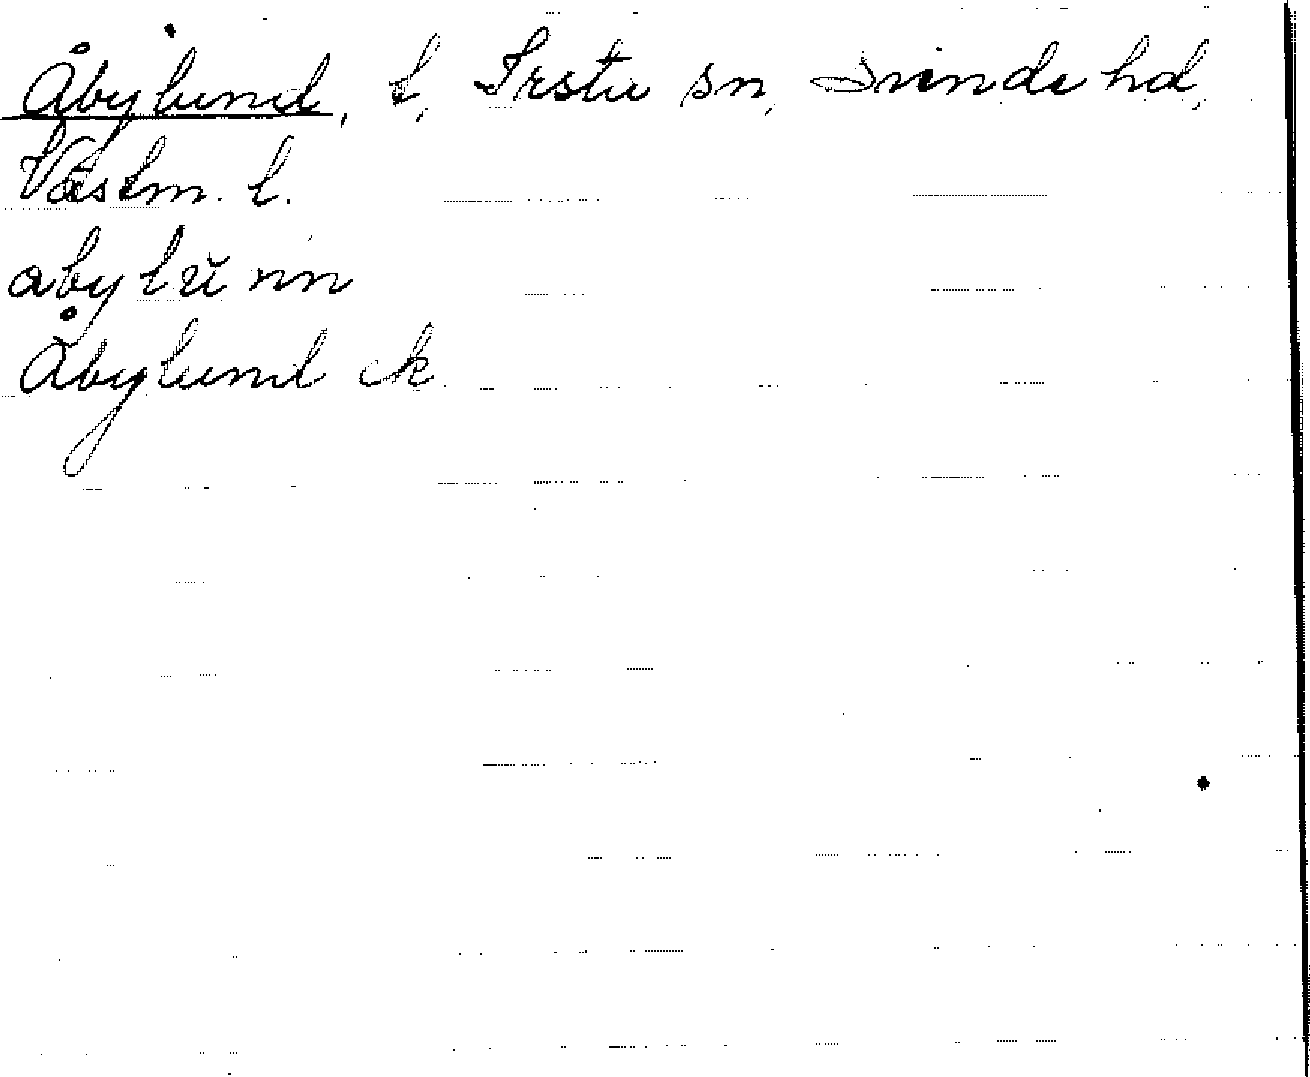 Åbylund, t, Irsta sn, Siende hd,
Västm. l.
abylŭnn
Åbylund ek